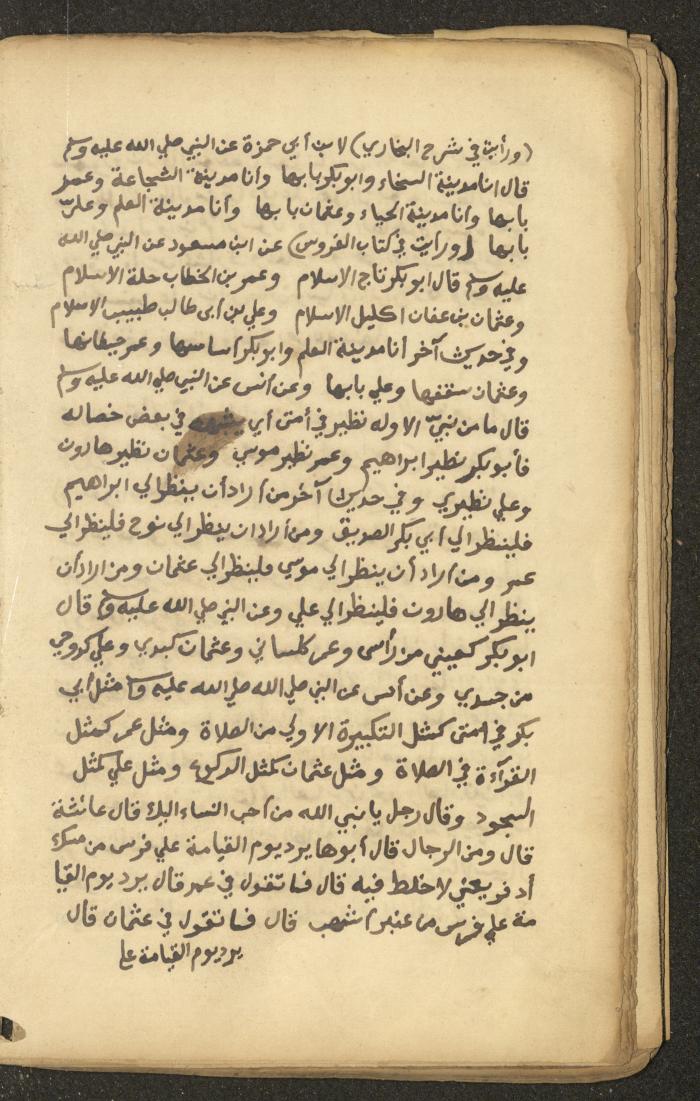 (ورأيت في شرح البخاري) لابن أبي حمزة عن النبي صلي الله عليه وسلم
قال انا مدينة السخاء وابو بكر بابها وانا مدينة الشجاعة وعمر
بابها وانا مدينة الحياء وعثمان بابها وأنا مدينة العلم وعليّ
بابها (ورايت في كتاب الفروس) عن ابن مسعود عن النبي صلي الله
عليه وسلم قال ابو بكر تاج الاسلام وعمر بن الخطاب حلة الاسلام
وعثمان بن عفان اكليل الاسلام وعلي بن أبى طالب طبيب الاسلام
وفي حديث آخر أنا مدينة العلم وابو بكر أساسها وعمر حيطانها
وعثمان سقفها وعلي بابها وعن أنس عن النبي صلي الله عليه وسلم
قال ما من نبيّ الا وله نظير في أمتى أي يشبهه في بعض خصاله
فأبو بكر نظير ابراهيم وعمر نظير موسي وعثمان نظير هارون
وعلي نظيري وفي حديث آخر من أراد أن ينظر الي ابراهيم
فلينظر الي أبي بكر الصديق ومن أراد ان ينظر الي نوح فلينظر الي
عمر ومن أراد أن ينظر الي موسي فلينظر الي عثمان ومن اراد أن
ينظر الي هارون فلينظر الي علي وعن النبي صلي الله عليه وسلم قال
ابو بكر كعيني من رأسى وعمر كلساني وعثمان كبدي وعلي كروحي
من جسدي وعن أنس عن النبي صلي الله صلي الله عليه وسلم مثل أبي
بكر في أمتى كمثل التكبيرة الاولي من الصلاة ومثل عمر كمثل
القرآءة في الصلاة ومثل عثمان كمثل الركوع ومثل علي كمثل
السجود وقال رجل يا نبي الله من أحب النساء اليك قال عائشة
قال ومن الرجال قال أبوها يرد يوم القيامة علي فرس من مسك
أدفر يعني لا خلط فيه قال فما تقول في عمر قال يرد يوم القيا
مة علي فرس من عنبر أشهب قال فما تقول في عثمان قال
يرد يوم القيامة علي